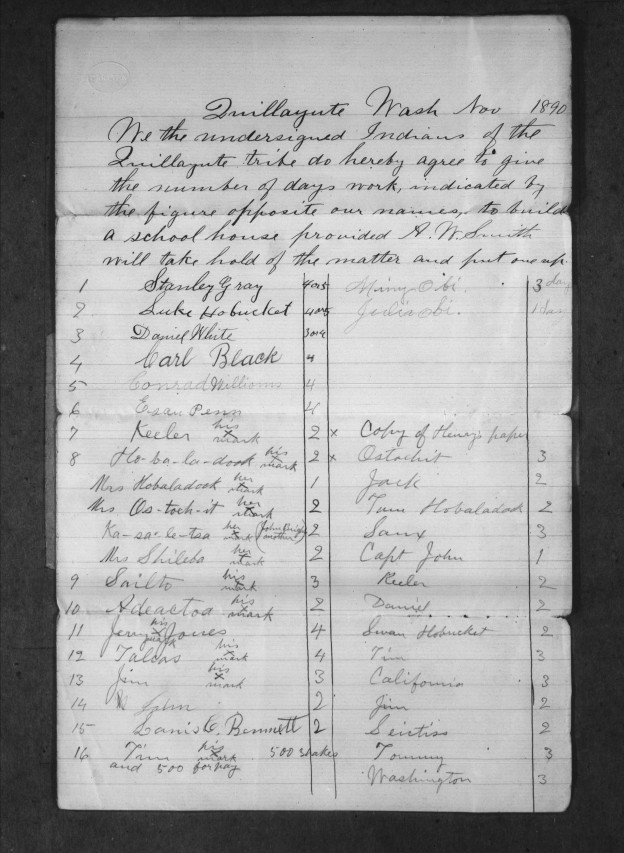 Quillayute Wash Nov 1890
We the undersigned Indians of the
Quillayute tribe do hereby agree to give
the number of days work, indicated by
the figure opposite our names, to build
a school house provided A. W. Smith
will take hold of the matter and put one up.
1 Stanley Gray 4 or 5 3 day
2 Luke Hobucket 4 or 5 1 day
3 Daniel White 3 or 4
4 Carl Black 4
5 Conrad Williams 4
6 Esau Penn 4
7 Keeler his x mark 2 x Copy of Henry's paper
8 Ho-ba-la-dook his x mark 2 x Ostochit 3
Mrs Hobaladook her x mark 1 Jack 2
Mrs Os-toch-it her x mark 2 Tom Hobaladook 2
Ka-sa-le-tsa her x mark 2 Saux 3
Mrs Shileba her x mark 2 Capt John 1
9 Sailto his x mark 3 Keeler 2
10 Adeactoa his x mark 2 Daniel 2
11 Jenny Jones his x mark 4 Swan Hobucket 2
12 his x mark 4 Tim 3
13 Jim his x mark 3 California 3
14 2 Jim 2
15 Bennett 2 2
16 Tim his x mark 500 shakes Tommy 3
and 500 for pay
Washington 3